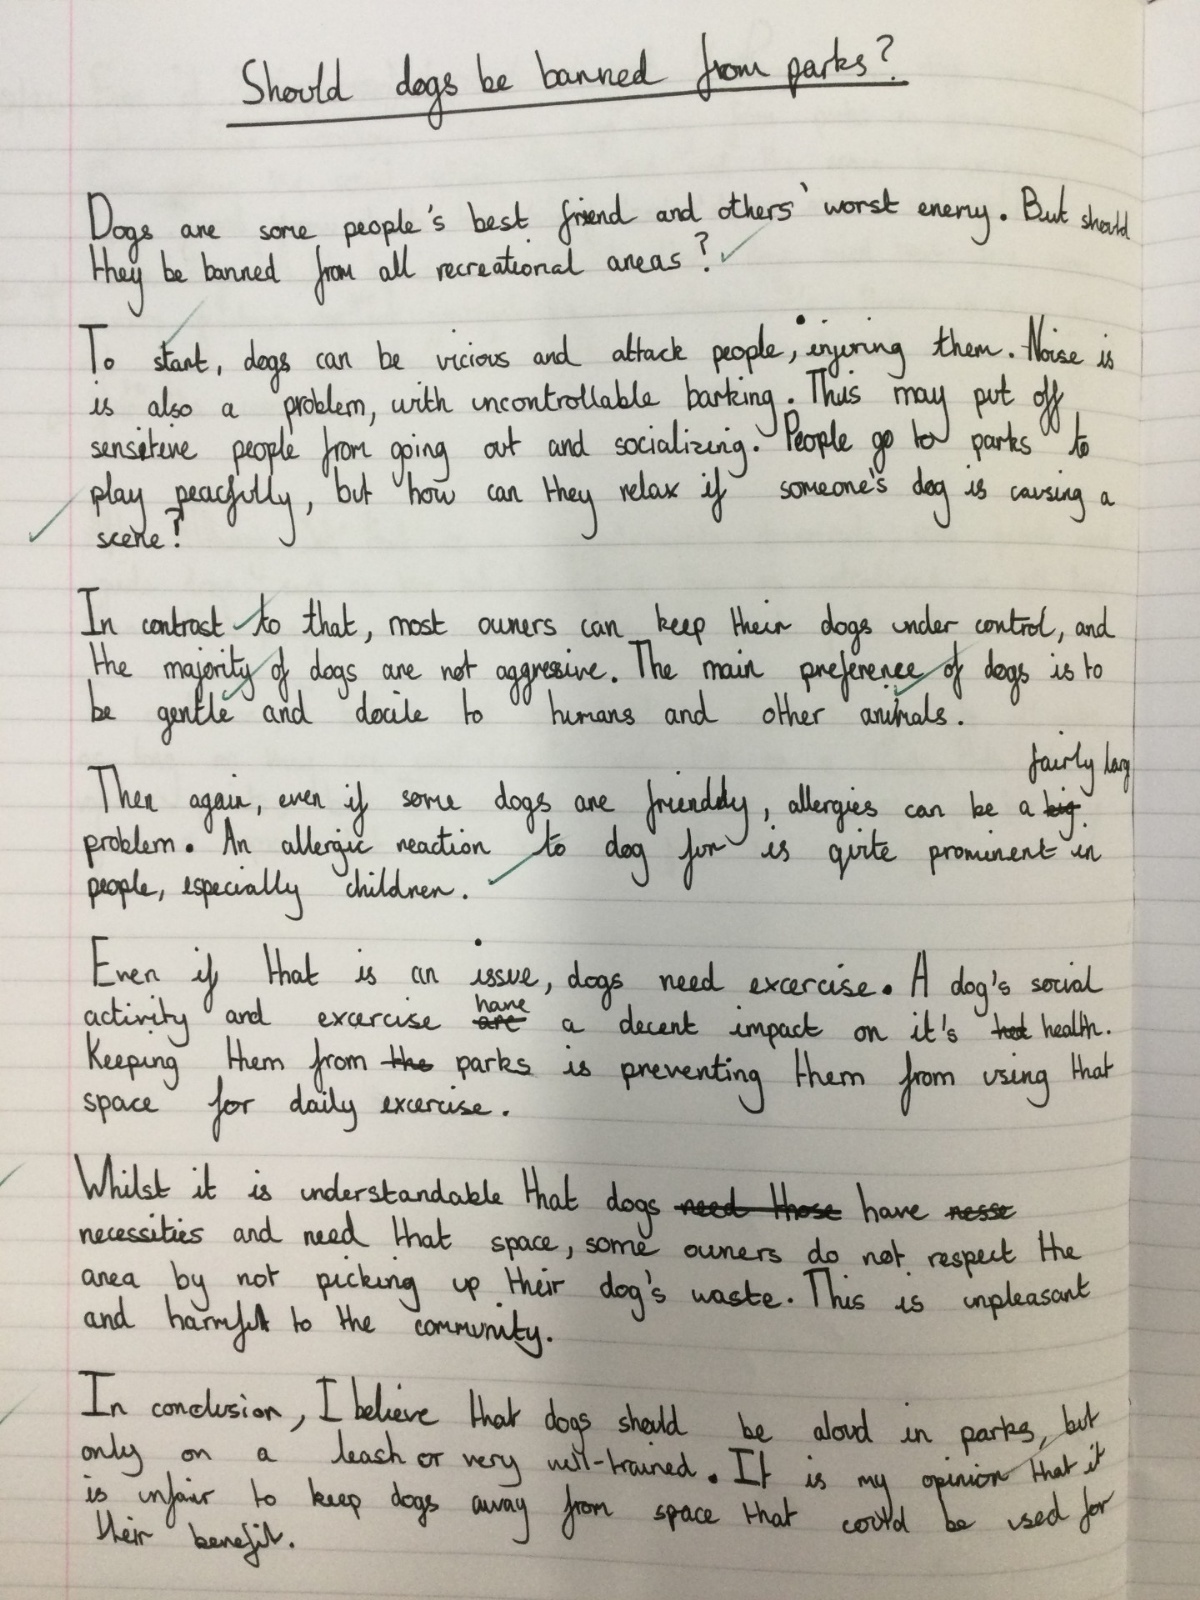 Should dogs be banned from parks?
Dogs are some people's best friend and others' worst enemy. But should
they be banned from all recreational areas?
To start, dogs can be vicious and attack people, injuring them. Noise is
is also a problem, with uncontrollable barking. This may put off
sensitive people from going out and socializing. People go to parks to
play peacfully, but how can they relax if someone's dog is causing a
scene?
In contrast to that, most owners can keep their dogs under control, and
the majority of dogs are not aggressive. The main preference of dogs is to
be gentle and docile to humans and other animals.
fairly larg
Then again, even if some dogs are friendly, allergies can be a big
problem. An allergic reaction to dog fur is quite prominent in
people, especially children.
Even if that is an issue, dogs need excercise. A dog's social
have
activity and excercise are a decent impact on it's health.
Keeping them from the parks is preventing them from using that
space for daily excercise.
Whilst it is understandable that dogs need those have nesse
necessities and need that space, some owners do not respect the
area by not picking up their dog's waste. This is unpleasant
and harmful to the community.
In conclusion, I believe that dogs should be aloud in parks, but
only on a leash or very well-trained. It is my opinion that it
is unfair to keep dogs away from space that could be used for
their benefit.